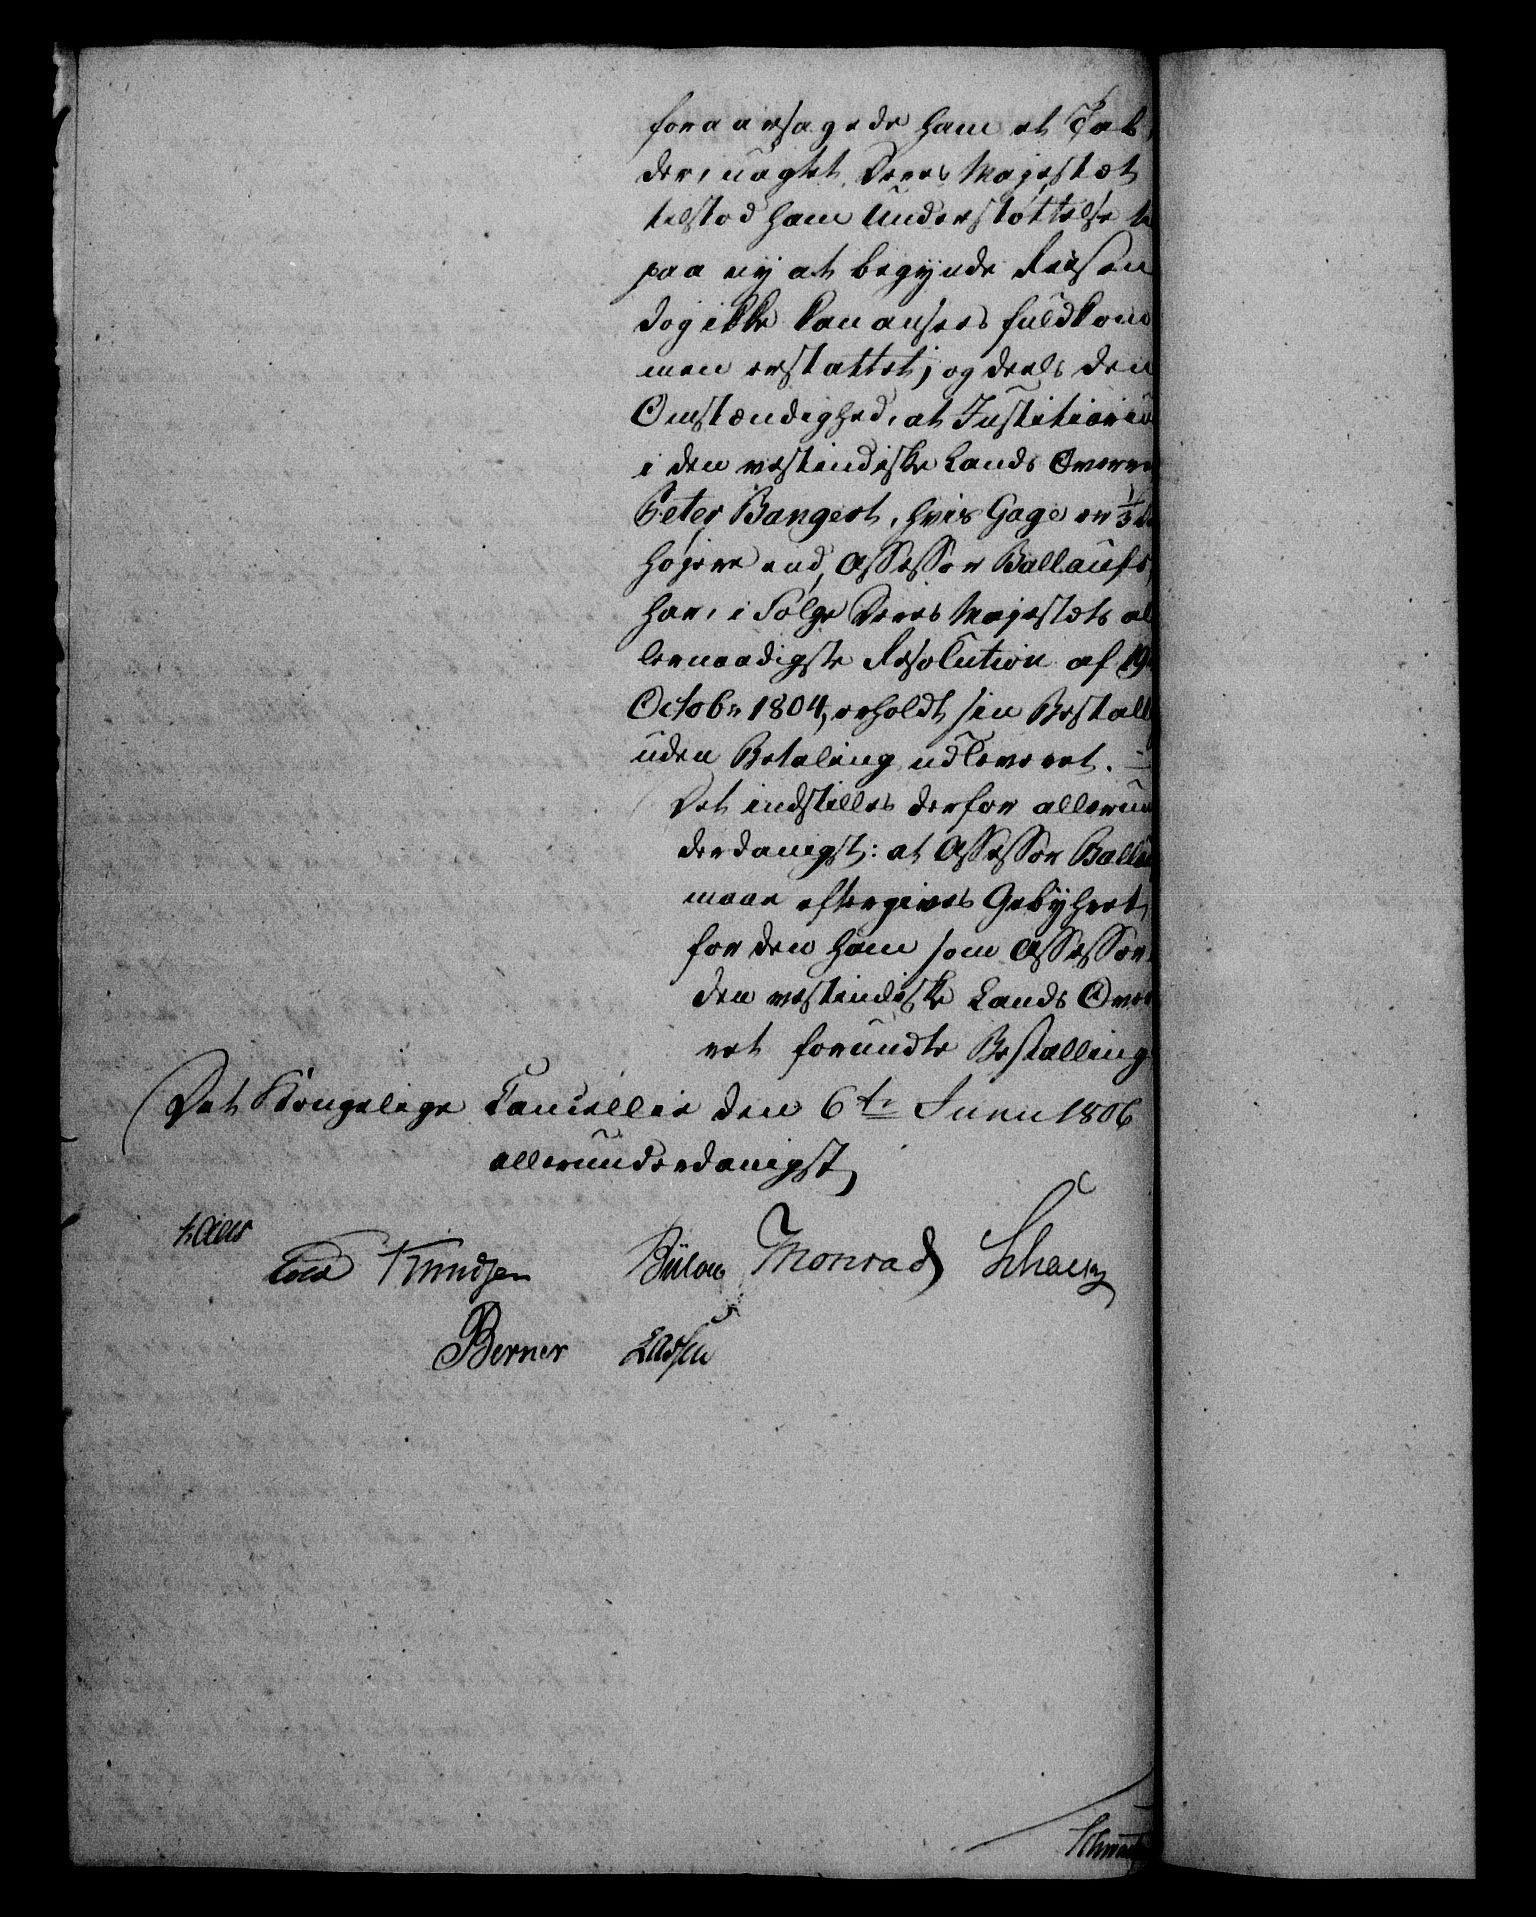 foraarsagede ham et Tab,
der, uagtet Deres Majestæt
tilstod ham Understøttelse
paa ny at begynde Reisen
dog ikke kan ansees fuldkom
men erstattet; og deels den
Omstændighed, at Justitiariu
i den vestindiske Lands Overre
Peter Bangert, hvis Gage er 1/3
højere end Assessor Ballaufs,
har, i Følge Deres Majestæts al
lernaadigste Resolution af 19
Octobr 1804, erholdt sin Bestall
uden Betaling udleveret.
Det indstilles derfor allerun
derdanigst: at Assessor Ballau
maae eftergives Gebyhret
for den ham som Assessor
den vestindiske Lands Over
ret forundte Bestalling
Det Kongelige Cancellie den 6te Junii 1806
allerunderdanigst
Kaas
Cold Knudsen Bülow Monrad
Berner Lassen